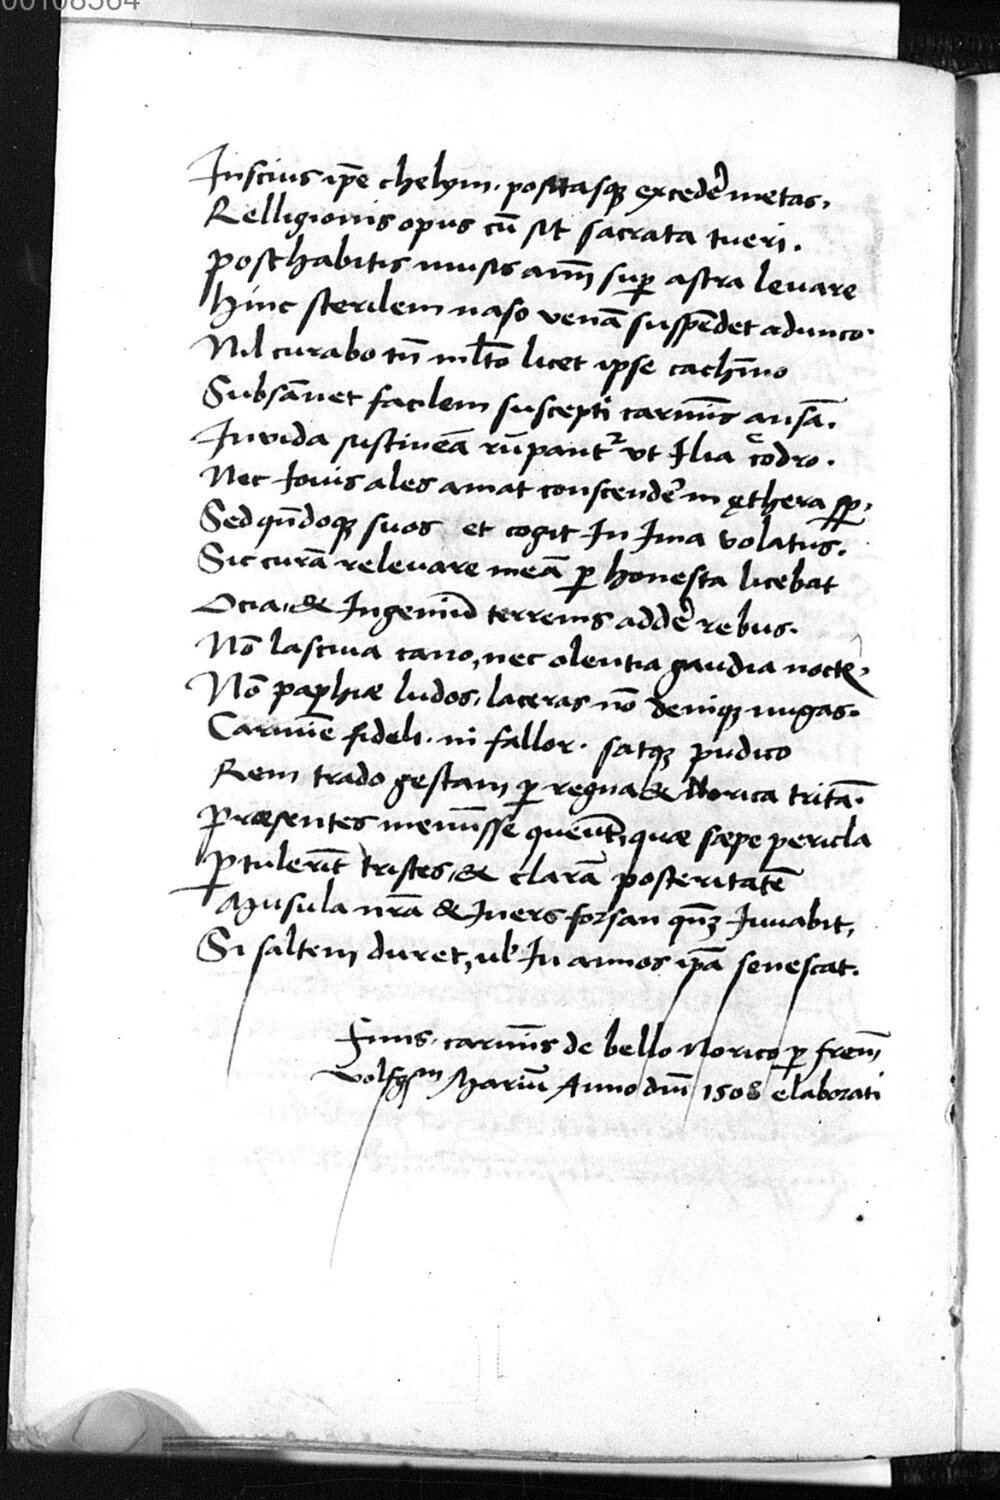 00108564
Inscius ip̄e chelym. positasqꝫ exceder̄ metas.
Relligionis opus cū sit sacrata tueri.
Posthabitis musis anīm suꝑ astra leuare
Hinc sterilem naso venā suspēdet adunco.
Nil curabo tn̄ mlto licet ipse cachīno
Subsānet facilem suscepti carmīs ansā.
Inuida sustineā rūpantᷣ vt Ilia codro.
Nec Iouis ales amat conscender̄ in ęthera sꝑ.
Sed qn̄doqꝫ suos et cogit In Ima volatus.
Sic curā releuare meā ꝑ honesta licebat
Ocia, & Ingeniū terrenis adder̄ rebus.
Nō lasciua cano, nec olentia gaudia nocte.
Nō paphiæ ludos, laceras nō deniqꝫ nugas.
Carmīe fideli. ni fallor. satqꝫ pudico
Rem trado gestam ꝑ regna & Norica tritā.
Præsentes memīsse queūt, quæ sæpe pericla
Ꝑtulerīt tristes, & clarā posteritatē
Musula nr̄a & Iners forsan qn̄qꝫ Iuuabit,
Si saltem duret, ul' In annos ip̄a senescat.
Finis. carmīs de bello Norico ꝑ frem̄
Volfgm̄ Mariū Anno dm̄ 1508 elaborati